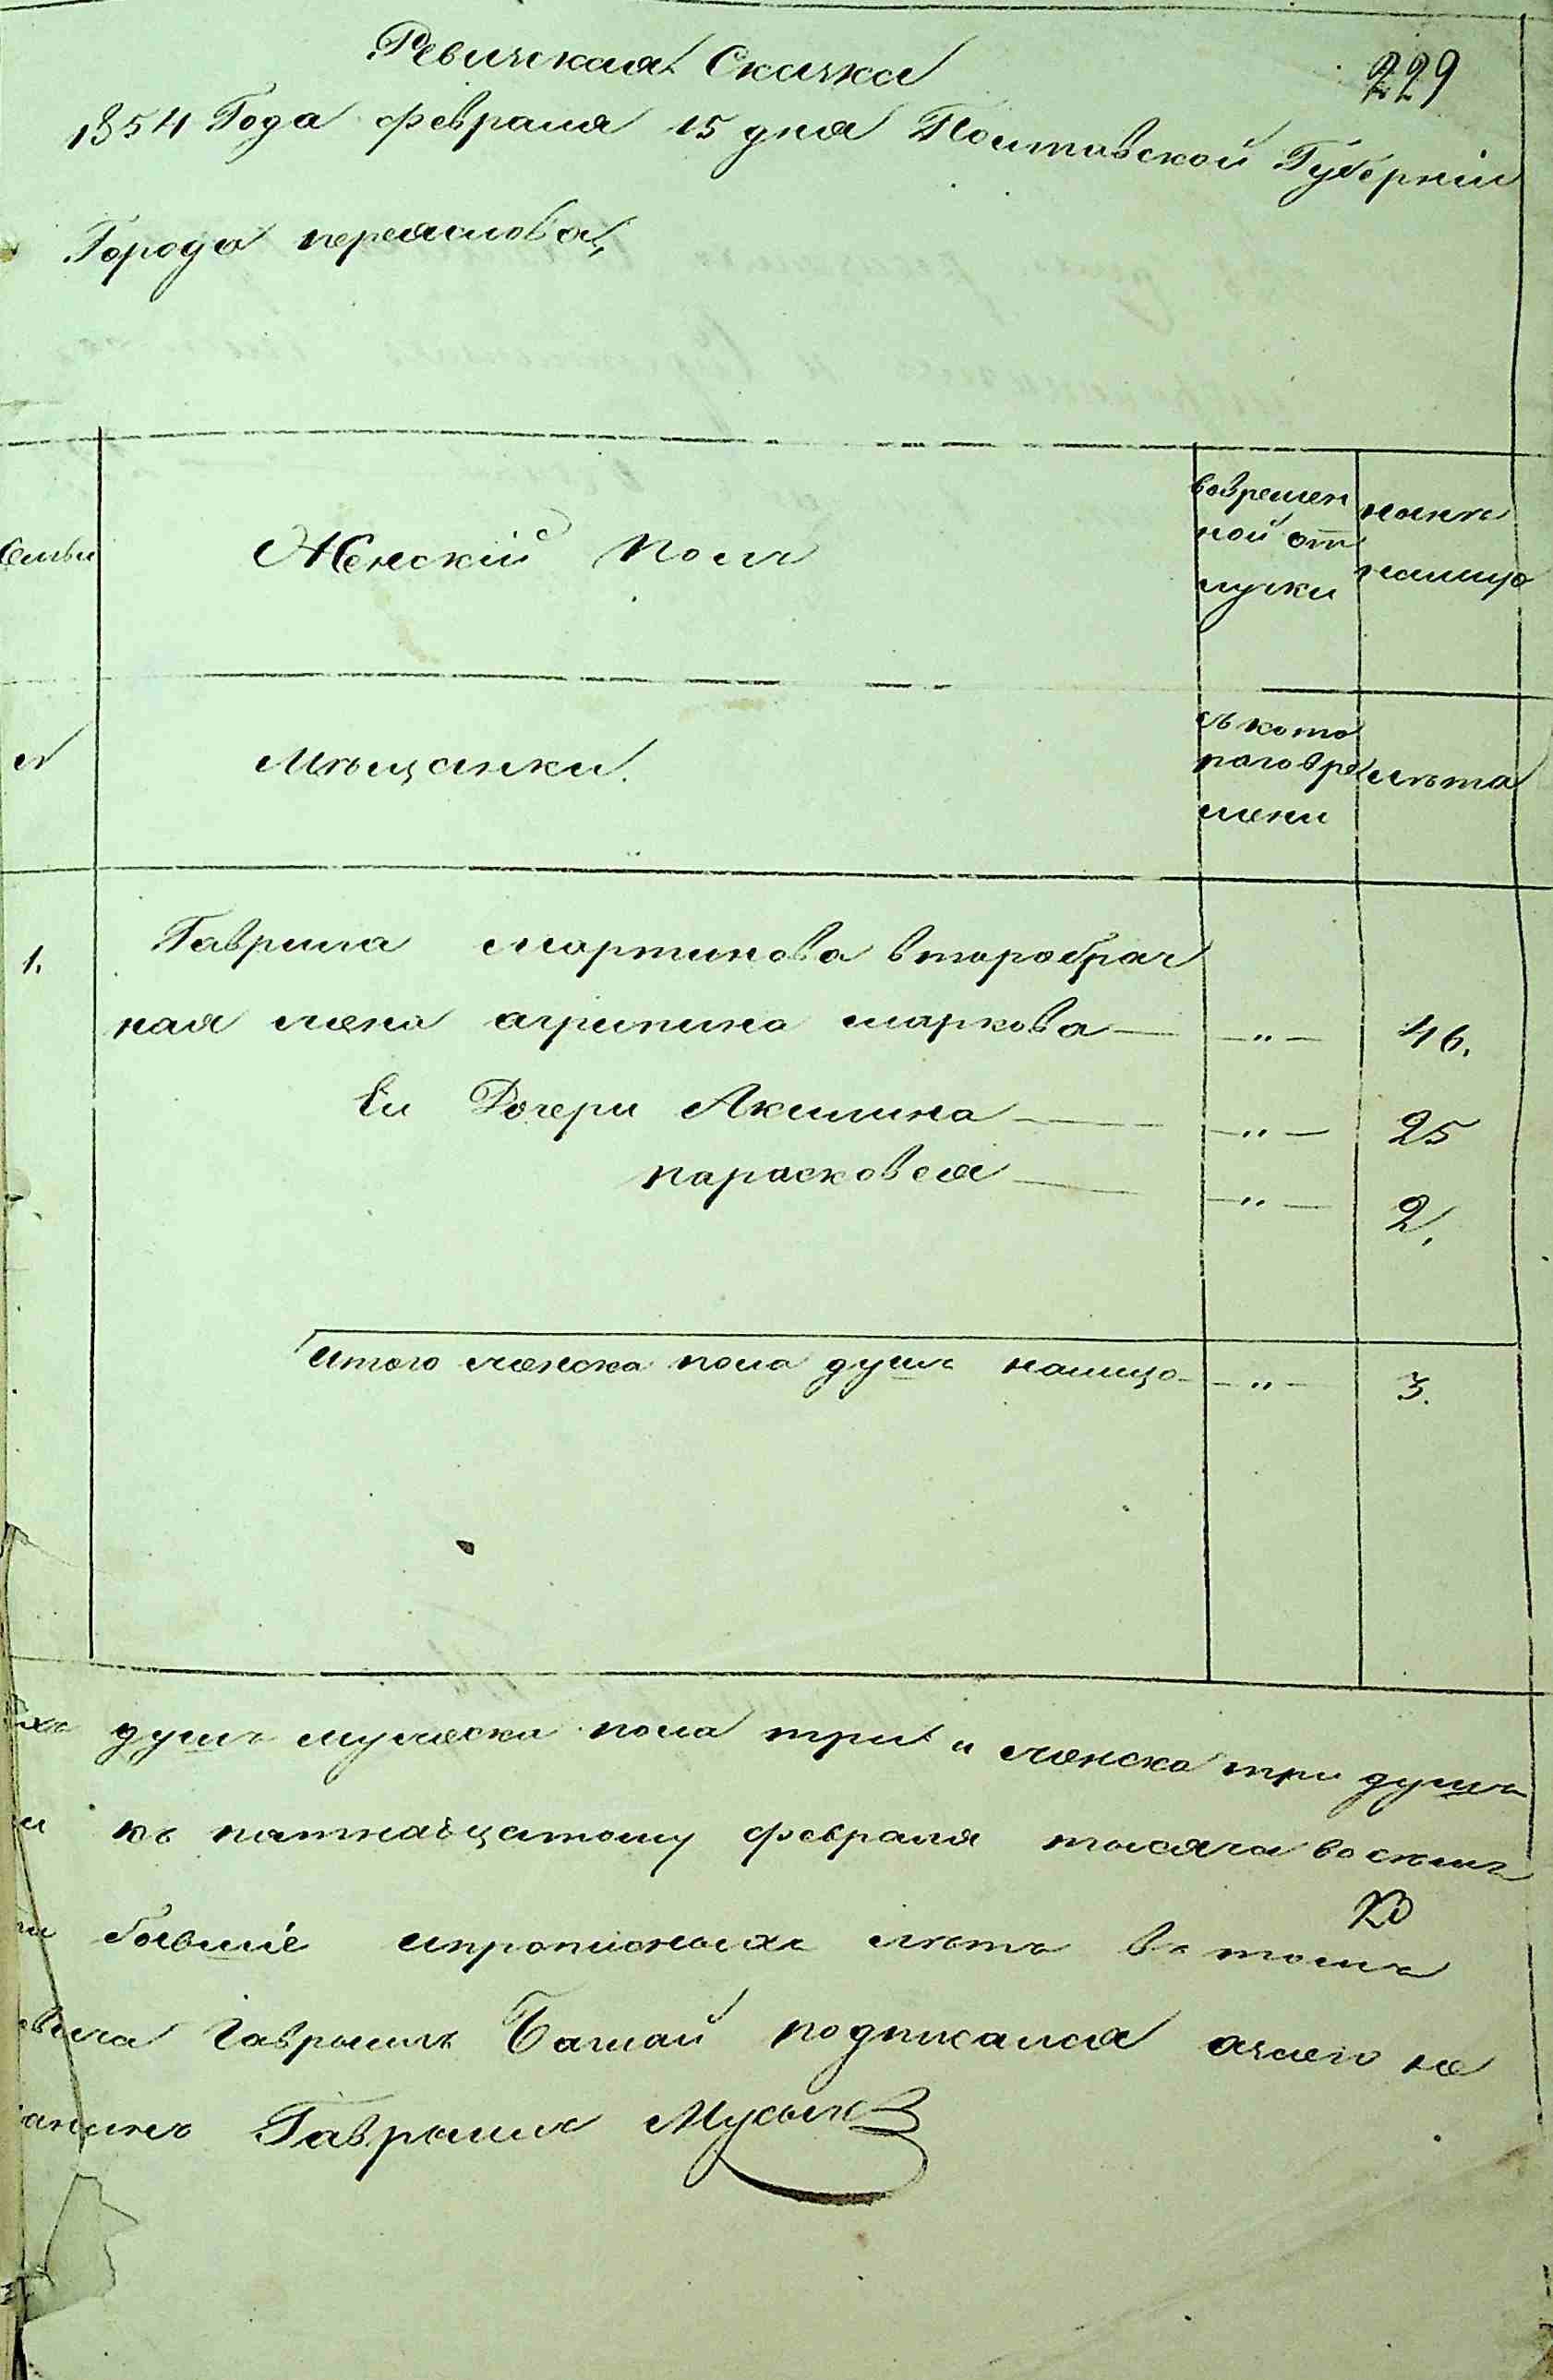 Ревизская Сказка
229
1854 Года февраля 15 дня Полтавской Губернiи
Города переяслова,
Семьи
Женскiй полъ
вовремен
ной от
лучки
ныне
налицо
№
Мѣщанки.
съ кото
раго вре
мени
лѣта
1.
Гаврила мартинова второбрач
ная жена агрипина маркова — „ — 46.
Еи Дочери Акилина — „ — 25
парасковея — „ — 2.
итого женска пола душъ налицо — „ — 3.
душъ мужеска пола три и женска три душъ
къ пятнадцатому февраля тысяча восемъ
бывшiе ипрописныхъ летъ въ томъ
Гаврыилъ Бачмай подписался
Гаврыилъ Мусын